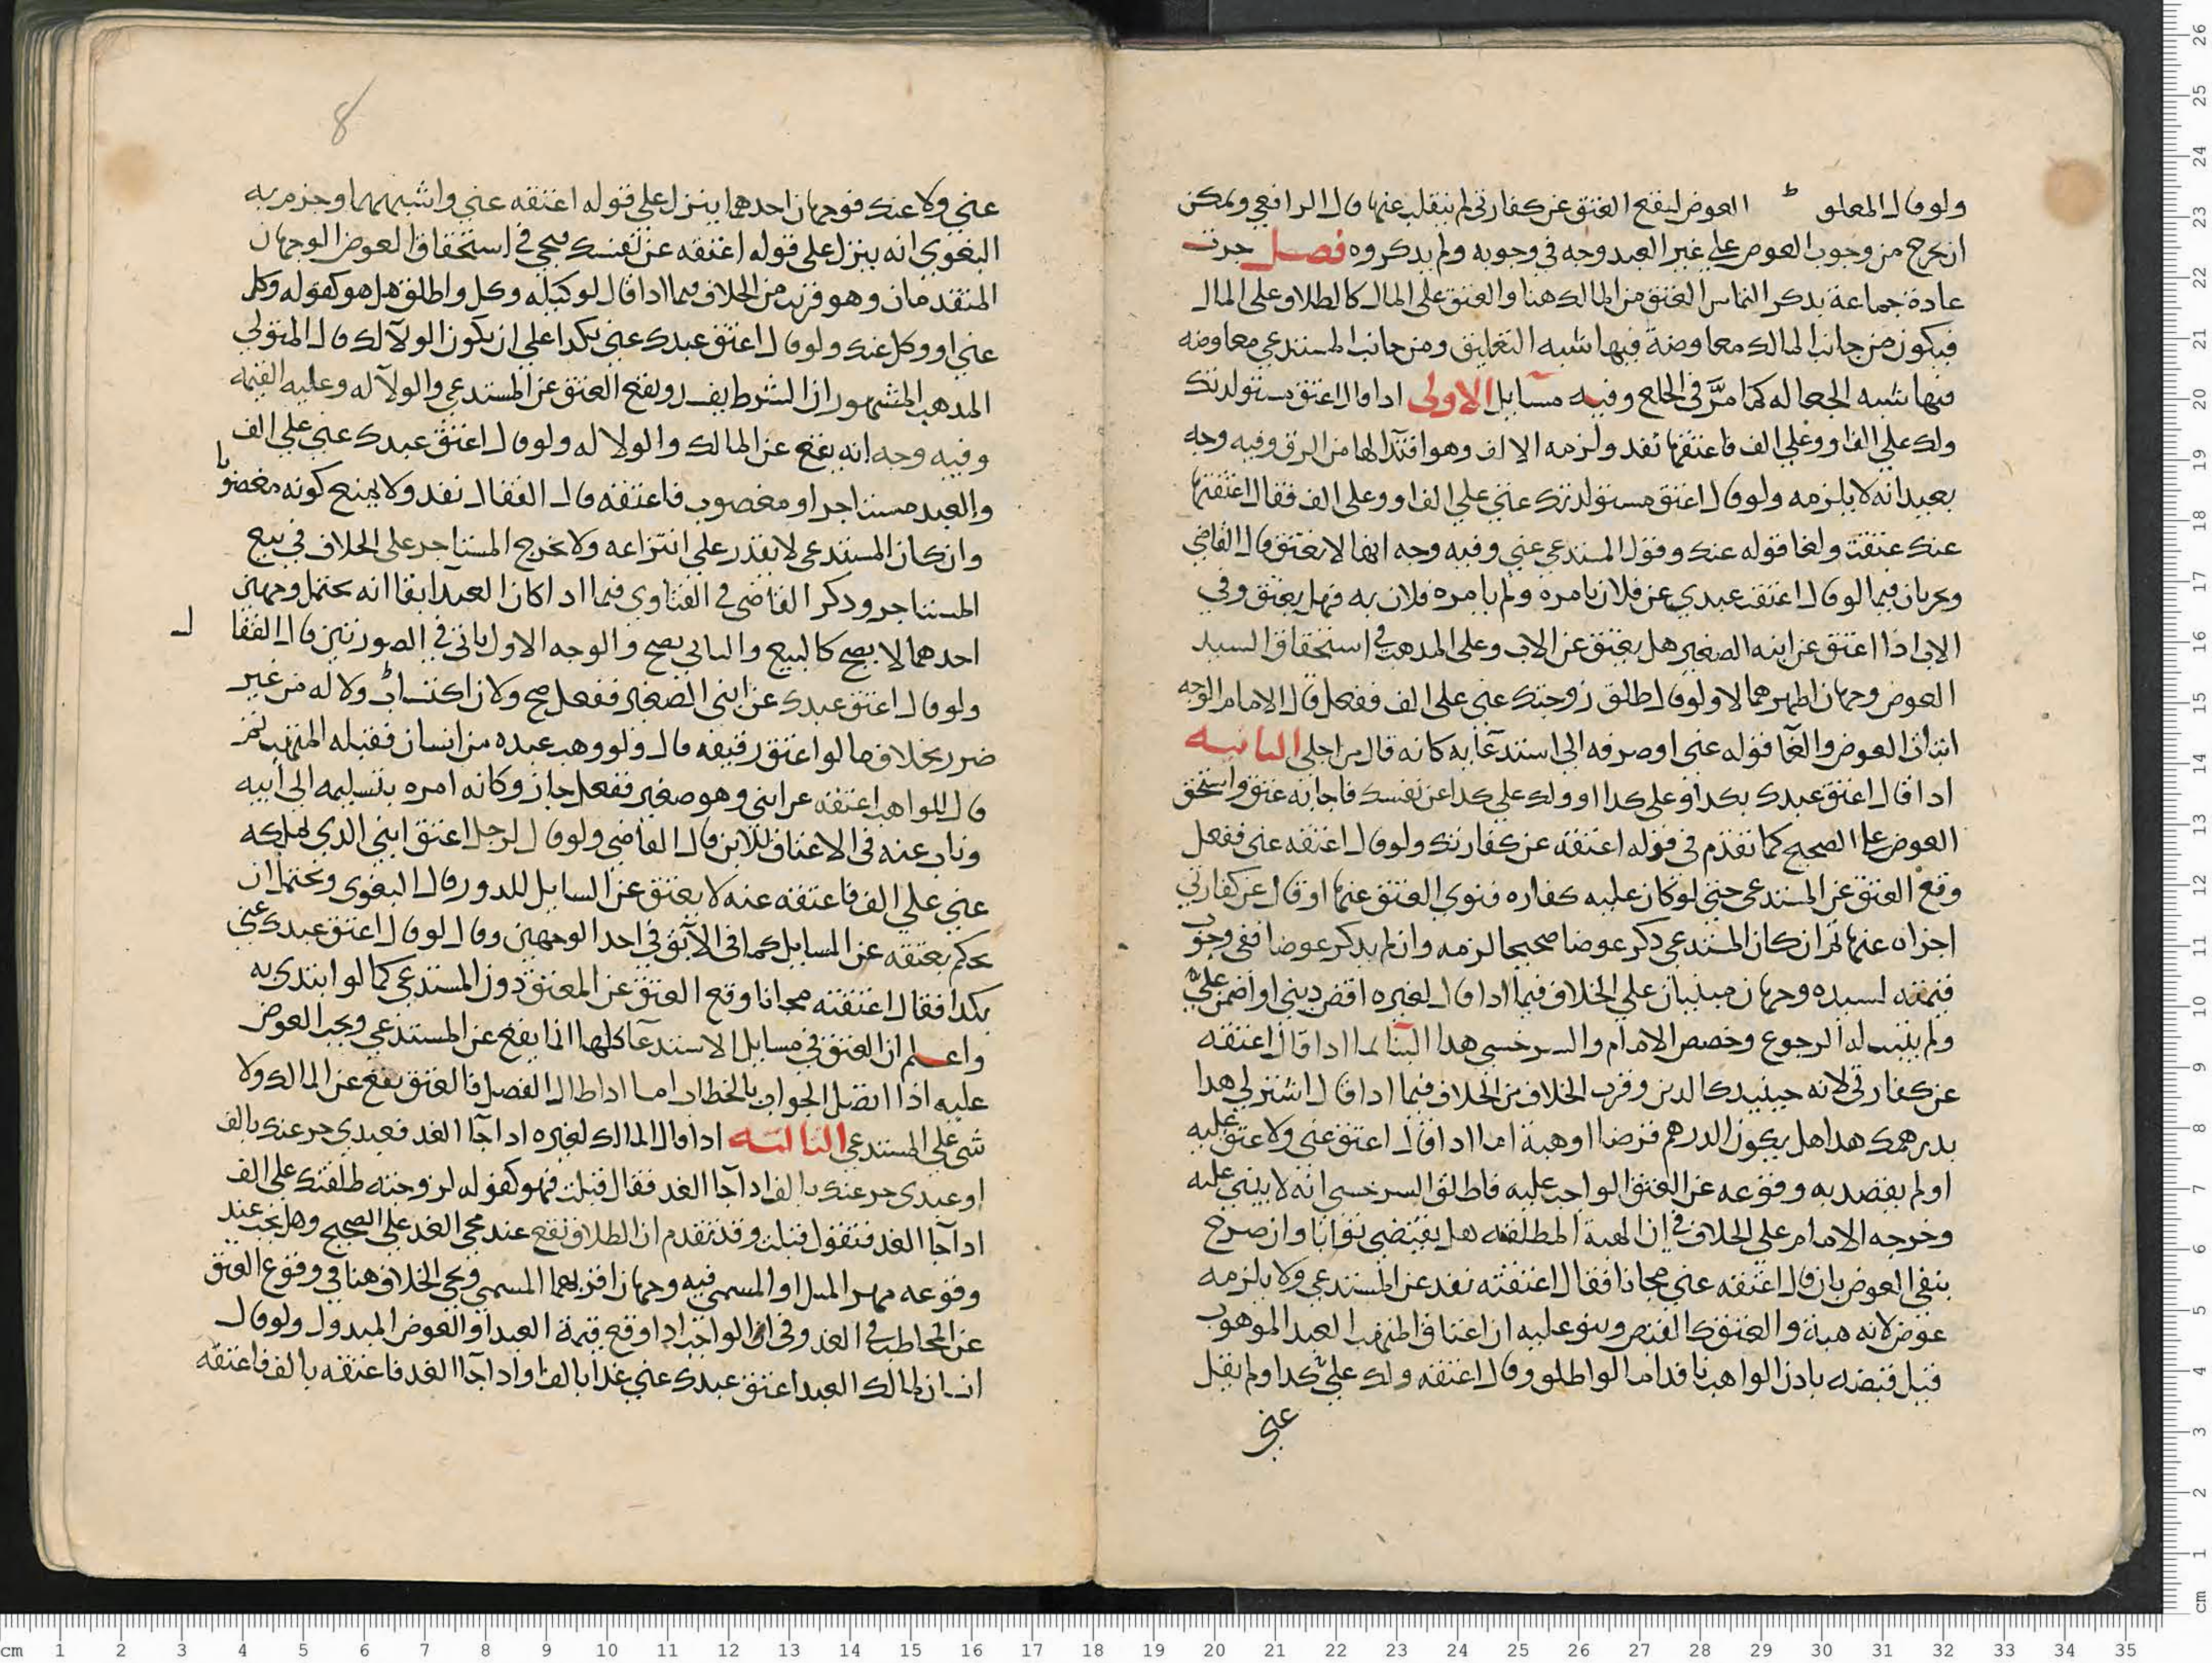 ولو قال المعلق ط العوض ليقع العتق عن كفارتي لم ينقلب عنها قال الرافعي ويمكن
ان يخرج من وجوب العوض على غير العبد وجه في وجوبه ولم يذكروه فصل جرت
عادة جماعة بذكر التماس العتق من المالك هنا والعتق على المال كالطلاق على المال
فيكون من جانب المالك معاوضة فيها شبه التعليق ومن جانب المستدعي معاوضه
فيها شبه الجعاله كما مرَّ في الخلع وفيه مسايل الاولى اذا قال اعتق مستولدتك
ولك علي الف او وعلي الف فاعتقها نفد ولزمه الالف وهو افتدآ لها من الرق وفيه وجه
بعيد انه لا يلزمه ولو قال اعتق مستولدتك عني علي الف او وعلى الف فقال اعتقتها
عنك عتقت ولغا قوله عنك وقول المستدعي عني وفيه وجه انها لا يعتق قال القاضي
ويجريان فيما لو قال اعتقت عبدي عن فلان بامره ولم يامره فلان به فهل يعتق وفي
الاب اذا اعتق عن ابنه الصغير هل يعتق عن الاب وعلى المذهب في استحقاق السيد
العوض وجهان اظهرهما لا ولو قال طلق زوجتك عني على الف ففعل قال الامام الوجه
اثبات العوض والغآ قوله عني او صرفه الى استدعآيه كانه قال من اجلي الثانيه
اذا قال اعتق عبدك بكدا او على كدا او ولك علي كدا عن نفسك فاجابه عتق واستحق
العوض على الصحيح كما تقدم في قوله اعتقه عن كفارتك ولو قال اعتقه عني ففعل
وقع العتق عن المستدعي حتى لو كان عليه كفاره فنوى العتق عنها او قال عن كفارتي
اجزاه عنها ثم ان كان المستدعي ذكر عوضا صحيحا لزمه وان لم يذكر عوضا ففي وجوب
قيمته لسيده وجهان مبنيان علي الخلاف فيما اذا قال لغيره اقض ديني او اضمن عليّ
ولم يثبت له الرجوع وخصص الامام والسرخسي هدا البنا لما اذا قال اعتقه
عن كفارتي لانه حينيد كالدين وقرب الخلاف من الخلاف فيما اذا قال اشتر لي هدا
بدرهمك هدا هل يكون الدرهم قرضا او هبة اما اذا قال اعتق عني ولا عتق عليه
او لم يقصد به وقوعه عن العتق الواجب عليه فاطلق السرخسي انه لا يبنى عليه
وخرجه الامام على الخلاف في ان الهبة المطلقه هل يقتضي ثوابا وان صرح
بنفي العوض بان قال اعتقه عني مجانا فقال اعتقته نفد عن المستدعي ولا يلزمه
عوض لانه هبة والعتق كالقبض ونبني عليه ان اعتاق المتهب العبد الموهوب
قبل قبضه بادن الواهب نافد اما لو اطلق وقال اعتقه ولك عليّ كدا ولم يقل
عني
8
عني ولا عنك فوجهان احدهما ينزل على قوله اعتقه عني واشبههما وجزم به
البغوي انه ينزل على قوله اعتقه عن نفسك فيجي في استحقاق العوض الوجهان
المتقدمان وهو قريب من الخلاف فيما اذا قال لوكيله وكل واطلق هل هو كقوله وكل
عني او وكل عنك ولو قال اعتق عبدك عني بكدا على ان يكون الولآ لك قال المتولي
المذهب المشهور ان الشرط يفسد ويقع العتق عن المستدعي والولآ له وعليه القيمه
وفيه وجه انه يقع عن المالك والولا له ولو قال اعتق عبدك عني علي الف
والعبد مستاجر او مغصوب فاعتقه قال القفال نفد ولا يمنع كونه مغصوبا
وان كان المستدعي لا يقدر علي انتزاعه ولا يخرج المستاجر على الخلاف في بيع
المستاجر وذكر القاضي في الفتاوي فيما اذا كان العبد ابقا انه يحتمل وجهين
احدهما لا يصح كالبيع والثاني يصح والوجه الاول ياتي في الصورتين قال القفال
ولو قال اعتق عبدك عن ابني الصغير ففعل صح وكان اكتساب ولا له من غير
ضرر بخلاف ما لو اعتق رقيقه قال ولو وهب عبده من انسان فقبله المتهب ثم
قال للواهب اعتقه عن ابني وهو صغير ففعل جاز وكانه امره بتسليمه الى ابيه
وناب عنه في الاعتاق للابن قال القاضي ولو قال لرجل اعتق ابني الذي تملكه
عني علي الف فاعتقه عنه لا يعتق عن السايل للدور قال البغوي ويحتمل ان
يحكم بعتقه عن السايل كما في الآبق في احد الوجهين وقال لو قال اعتق عبدك عني
بكدا فقال اعتقته مجانا وقع العتق عن المعتق دون المستدعي كما لو ابتدى به
واعلم ان العتق في مسايل الاستدعآ كلها انما يقع عن المستدعي ويجب العوض
عليه اذا اتصل الجواب بالخطاب اما اذا طال الفصل فالعتق يقع عن المالك ولا
شي علي المستدعي الثالثه اذا قال المالك لغيره اذا جآ الغد فعبدي حر عنك بالف
او عبدي حر عنك بالف اذا جآ الغد فقال قبلت فهو كقوله لزوجته طلقتك على الف
اذا جآ الغد فتقول قبلت وقد تقدم ان الطلاق يقع عند مجي الغد على الصحيح وهل يجب عند
وقوعه مهر المثل او المسمى فيه وجهان اقربهما المسمى ويجي الخلاف هنا في وقوع العتق
عن المخاطب في الغد وفي ان الواجب اذا وقع قيمة العبد او العوض المبدول ولو قال
انسان لمالك العبد اعتق عبدك عني غدا بالف او اذا جآ الغد فاعتقه بالف فاعتقه